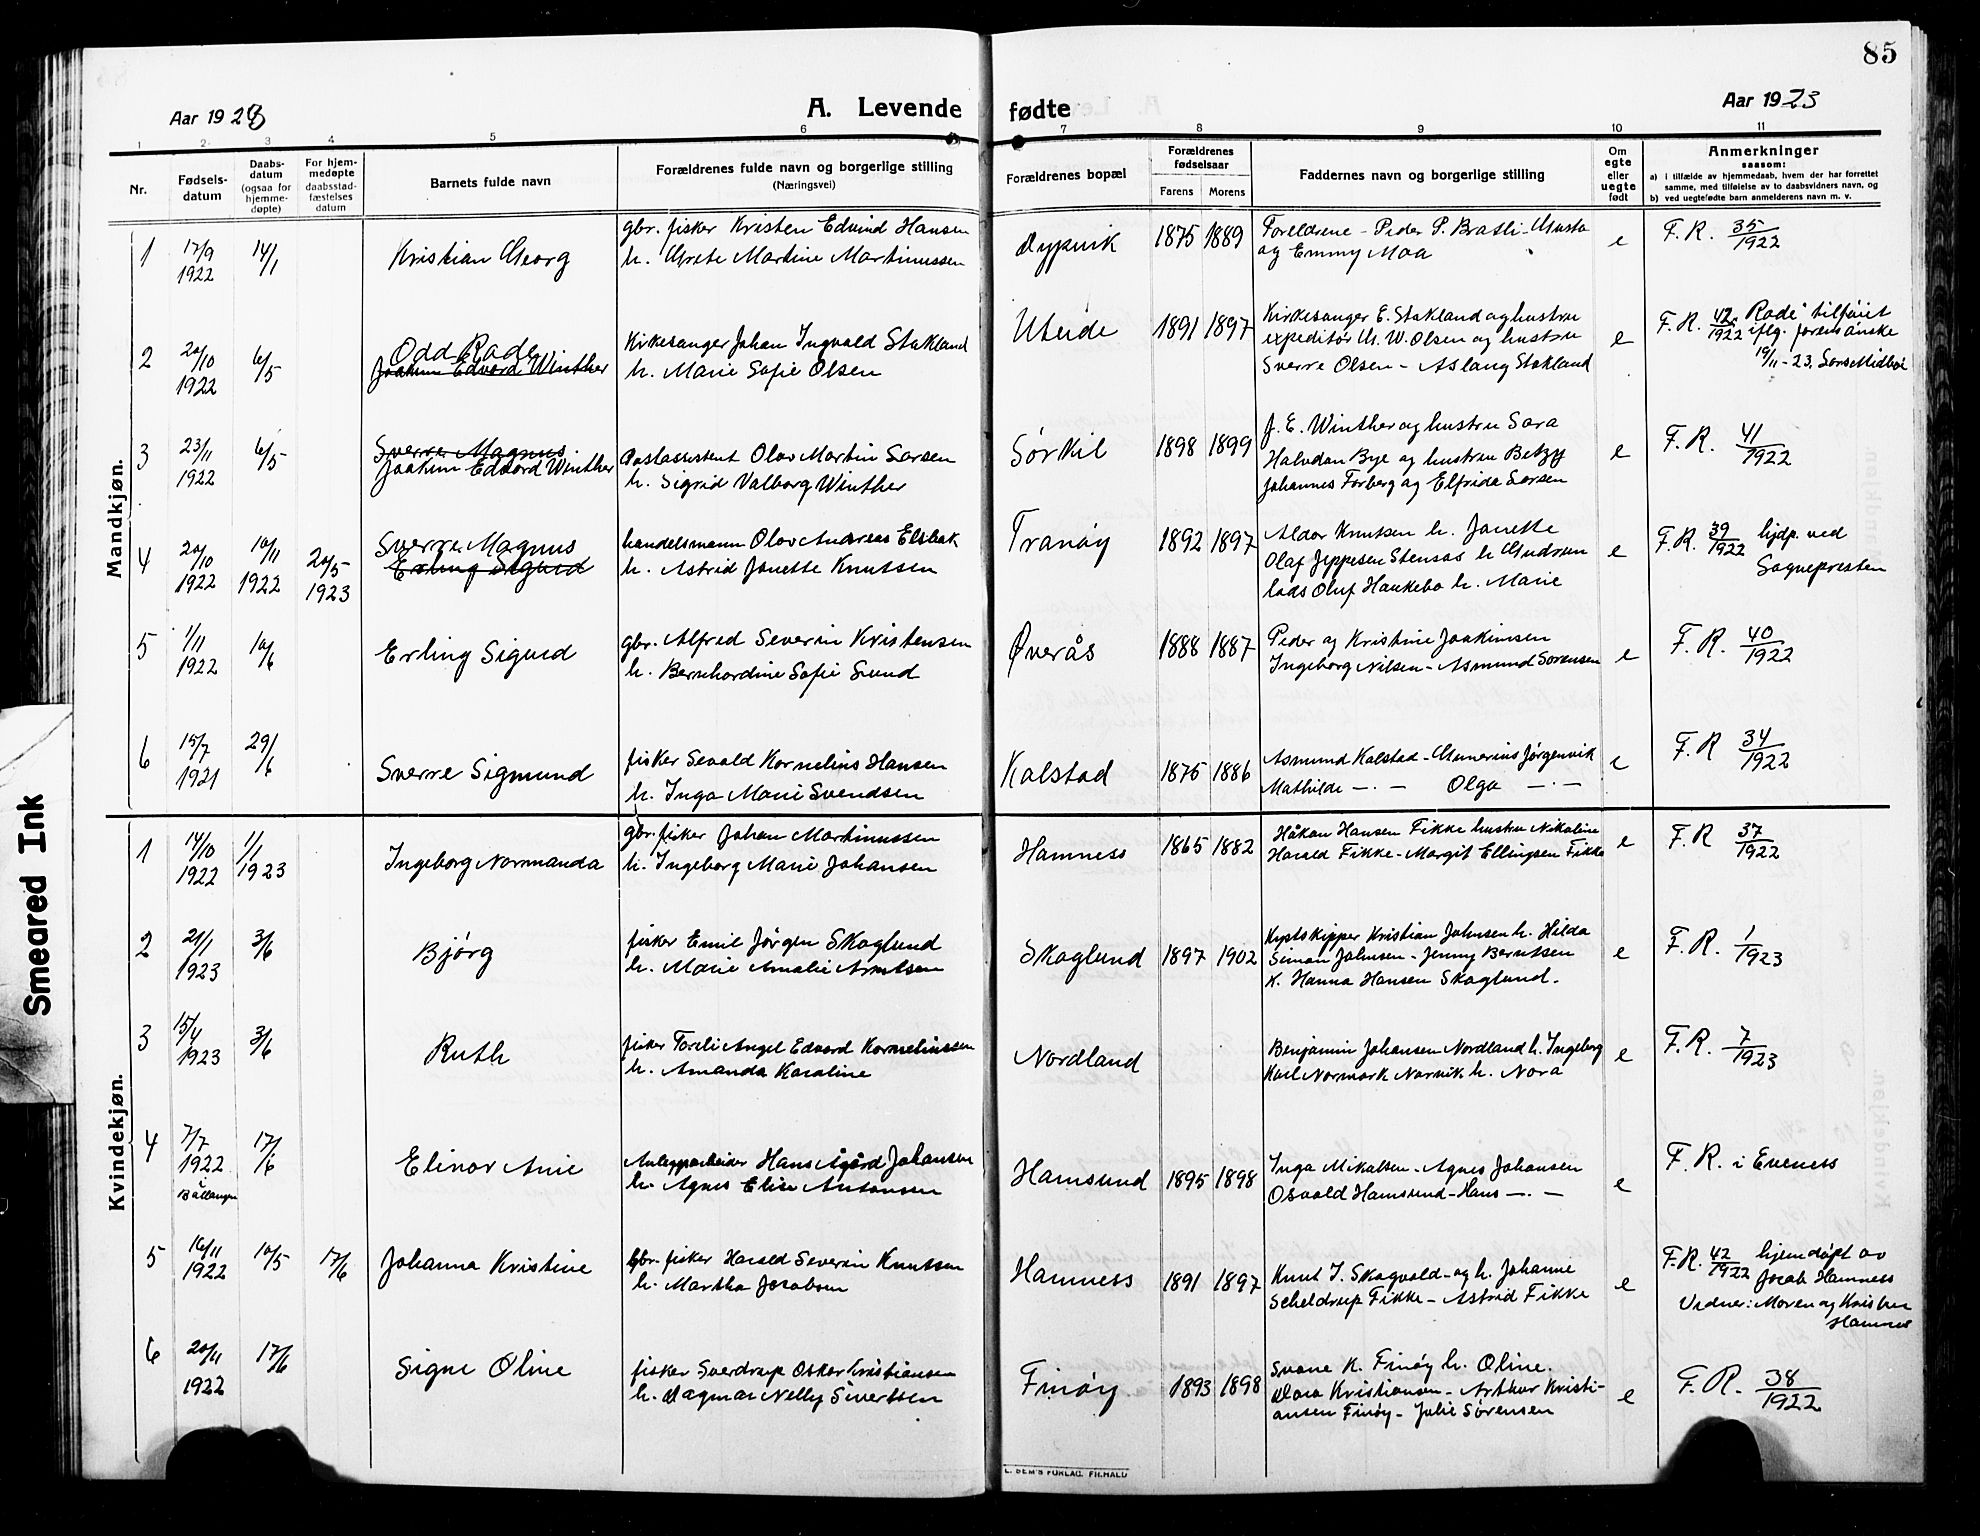 85
Aar 1923
A. Levende fødte
Aar 1923
1 2 3 4 5 6 7 8 9 10 11
Nr.
Fødsels-
datum
Daabs-
datum
(ogsaa for
hjemme-
døpte)
For hjem-
medøpte
daabsstad-
fæstelses
datum
Barnets fulde navn
Forældrenes fulde navn og borgerlige stilling
(Næringsvei)
Forældrenes bopæl
Forældrenes
fødselsaar
Farens Morens
Faddernes navn og borgerlige stilling
Om
egte
eller
uegte
født
Anmerkninger
saasom:
a) i tilfælde av hjemmedaab, hvem der har forrettet
samme, med tilføielse av to daabsvidners navn, og
b) ved uegtefødte barn anmelderens navn m. v.
Mandkjøn.
1 17/9 1922 14/1 Kristian Georg
gbr. fisker Kristen Edvind Hansen
h. Grete Martine Martinussen
Dypvik 1875 1889
Foreldrene - Peder P. Bratli
og Emmy Moa
e F. R. 35/1922
2 20/10 1922 6/5 Odd Rade
Joakim Edvard Winther
Kirkesanger Johan Ingvald Stokland
h. Marie Sofie Olsen
Uteide 1891 1897
Kirkesanger E. Stokland og hustru
expeditør Chr. W. Olsen og hustru
Sverre Olsen - Aslaug Stokland
e F. R. 42/1922 "Rade" tilføiet
iflg. foreldres ønske
19/11-23.
3 23/11 1922 6/5 Sverre Magnus
Joakim Edvard Winther
Postassistent Olav Martin Larsen
h. Sigrid Valborg Winther
Sørkil 1898 1899
J. E. Winther og hustru Sara
Halvdan Bye og hustru Betzy
Johannes Forberg og Elfrida Larsen
e F. R. 41/1922
4 20/10 1922 10/11 1922 20/5 1923 Sverre Magnus
Erling Sigurd
handelsmann Olav Andreas Elsbak
h. Astrid Janette Knutsen
Tranøy 1892 1897
Aldor Knutsen h. Janette
Olaf Jeppesen Stensås h Gudrun
lods Oluf Haukebø h. Marie
e F. R. 39/1922 hjdp. ved
Sognepresten
5 1/11 1922 10/6 Erling Sigurd
gbr. Alfred Severin Kristensen
h. Bernhardine Sofie Lund
Øverås 1888 1887
Peder og Kristine Joakimsen
Ingeborg Nilsen - Asmund Sørensen
e F. R. 40/1922
6 15/7 1921 29/6 Sverre Sigmund
fisker Sevald Kornelius Hansen
h. Inga Marie Svendsen
Kalstad 1875 1886
Asmund Kalstad - Gunerius Jørgenvik
Mathilde — · — Olga — · —
e F. R 34/1922
Kvindekjøn.
1 14/10 1922 1/1 1923 Ingeborg Normanda
gbr. fisker Johan Martinussen
h. Ingeborg Marie Johansen
Hamness 1865 1882
Håkon Hansen Fikke hustru Nikoline
Harald Fikke - Margit Ellingsen Fikke
e F. R 37/1922
2 21/1 1923 3/6 Bjørg
fisker Emil Jørgen Skoglund
h. Marie Amalie Arntsen
Skoglund 1897 1902
Kystskipper Kristian Johnsen h. Hilda
Simon Johnsen - Jenny Berntsen
K. Hanna Hansen Skoglund.
e F. R. 1/1923
3 15/4 1923 3/6 Ruth
fisker Toreli Angel Edvard Korneliussen
h. Amanda Karoline
Nordland
Benjamin Johansen Nordland h. Ingeborg
Karl Normark Narvik h. Nora
e F. R. 7/1923
4 7/7 1922 Ballangen 17/6 Elinor Anie
Anleggsarbeider Hans Ågård Johansen
h. Agnes Elise Antonsen
Hamsund 1895 1898
Inga Mikalsen - Agnes Johansen
Osvald Hamsund - Hans — · —
e F. R. i Eveness
5 16/11 1922 10/5 17/6 Johanna Kristine
Gbr. fisker Harald Severin Knutsen
h. Martha Jacobsen
Hamness 1891 1897
Knut J. Skogvold - og h. Johanne
Scheldrup Fikke - Astrid Fikke
e F. R. 42/1922 hjemdøpt av
Jacob Hamness
Vidner: Moren og Kristen
Hamnes
6 20/11 1922 17/6 Signe Oline
fisker Sverdrup Oskar Kristiansen
h. Dagmar Nelly Sivertsen
Finøy 1893 1898
Svane K. Finøy h. Oline.
Dara Kristiansen - Arthur Kristi-
ansen Finøy - Julie Sørensen
e F. R. 38/1922
Smeared Ink